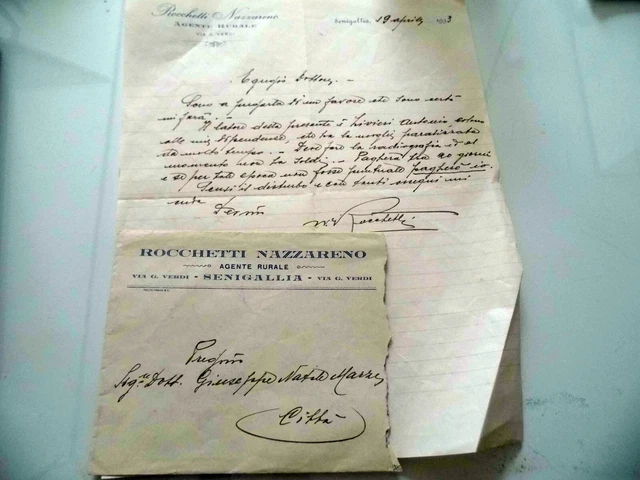 Rocchetti Nazzareno
AGENTE RURALE
VIA G. VERDI
Senigallia, 19 aprile 1933
Egregio Dottore, -
Sono a pregarla di un favore che sono certo
mi farà. -
Il latore della presente è Livieri Antonio colono
alle mie dipendenze, che ha la moglie paralizzata
da molto tempo. - Deve fare la radiografia ed al
momento non ha soldi. - Pagherà fra 20 giorni
e se per tale epoca non fosse puntuale pagherò io.
Scusi il disturbo e con tanti ossequi mi
creda
Devmo
Rocchetti
ROCCHETTI NAZZARENO
AGENTE RURALE
VIA G. VERDI - SENIGALLIA - VIA G. VERDI
Pregmo
Sigre Dott. Giuseppe Natale Marzi
Città